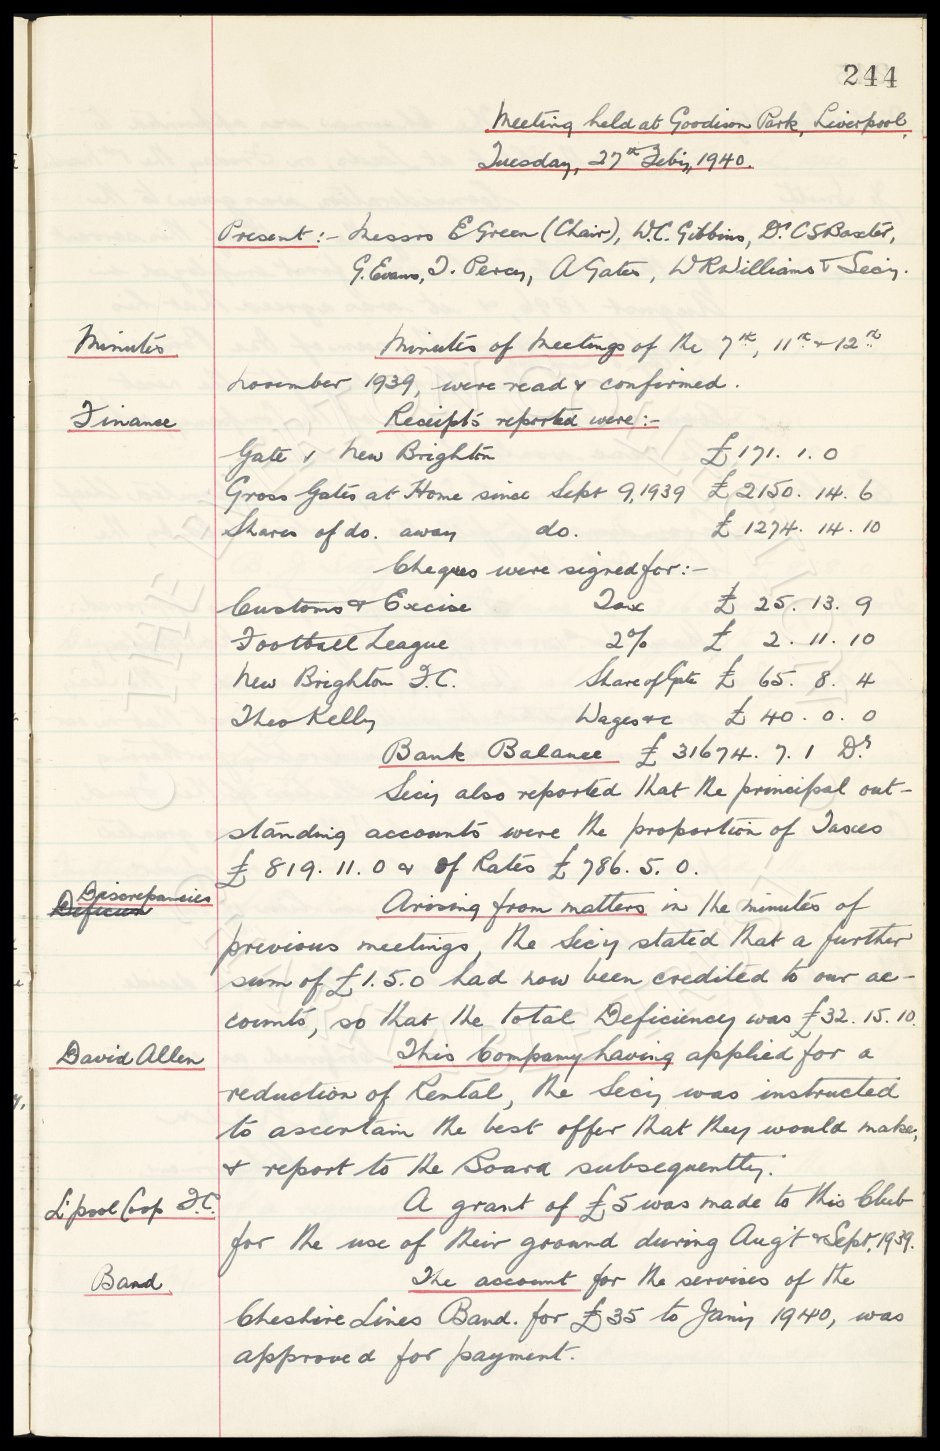 244
Meeting held at Goodison Park, Liverpool,
Tuesday, 27th Feb'y, 1940.
Present:- Messrs E Green (Chair), W.C. Gibbins, Dr. C S Baxter,
G. Evans, T. Percy, A Gates, W R Williams & Sec'y.
Minutes
Minutes of Meetings of the 7th, 11th & 12th
November 1939, were read & confirmed.
Finance
Receipts reported were:-
Gate v New Brighton £ 171. 1. 0
Gross Gates at Home since Sept 9, 1939 £ 2150. 14. 6
Shares of do. away do. £ 1274. 14. 10
Cheques were signed for:-
Customs & Excise Tax £ 25. 13. 9
Football League 2% £ 2. 11. 10
New Brighton F.C. Share of Gate £ 65. 8. 4
Theo Kelly Wages &c £ 40. 0. 0
Bank Balance £ 31674. 7. 1 Dr
Sec'y also reported that the principal out-
standing accounts were the proportion of Taxes
£ 819. 11. 0 & of Rates £ 786. 5. 0.
Discrepancies
Arising from matters in the minutes of
previous meetings, the Sec'y stated that a further
sum of £1. 5. 0 had now been credited to our ac-
counts, so that the total Deficiency was £32. 15. 10.
David Allen
This Company having applied for a
reduction of Rental, the Sec'y was instructed
to ascertain the best offer that they would make,
& report to the Board subsequently.
L'pool Coop F.C.
A grant of £5 was made to this Club
for the use of their ground during Aug't & Sept, 1939.
Band.
The account for the services of the
Cheshire Lines Band. for £35 to Jan'y 1940, was
approved for payment.